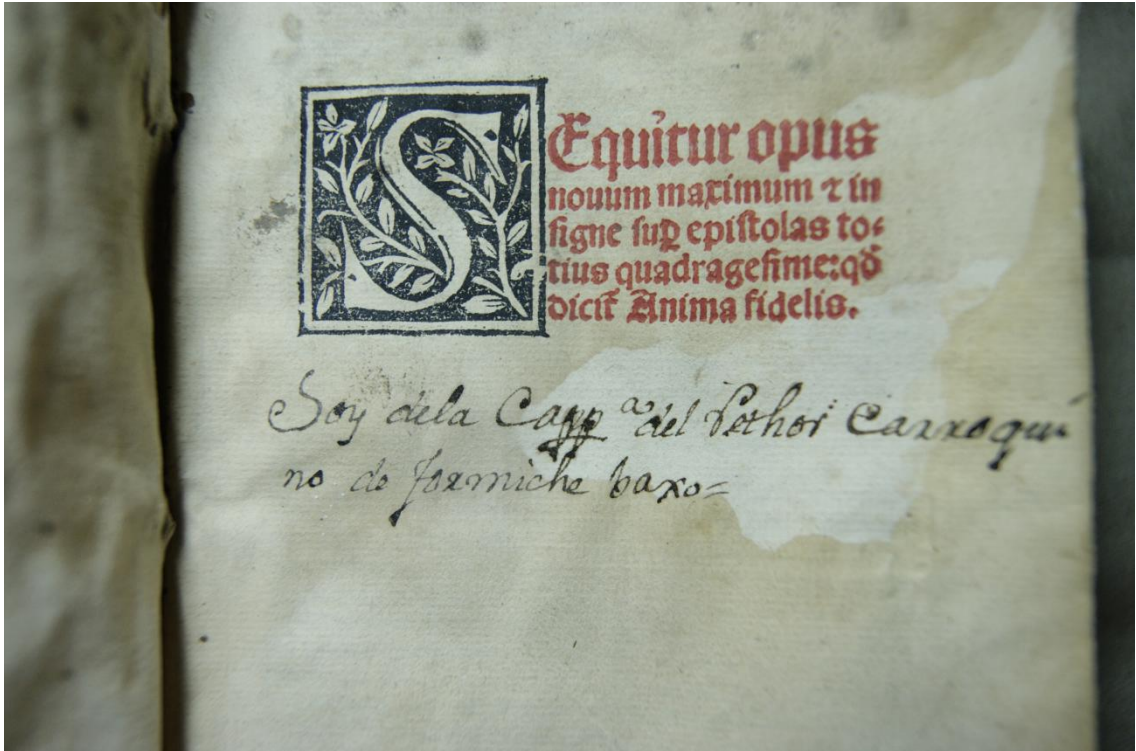 SEquitur opus
nouum maximum ⁊ in
signe suꝑ epistolas to⸗
tius quadragesime:qđ
dicit̃ Anima fidelis.
Soy dela Capp.ª del Rethor Carroqui
no de formiche baxo=